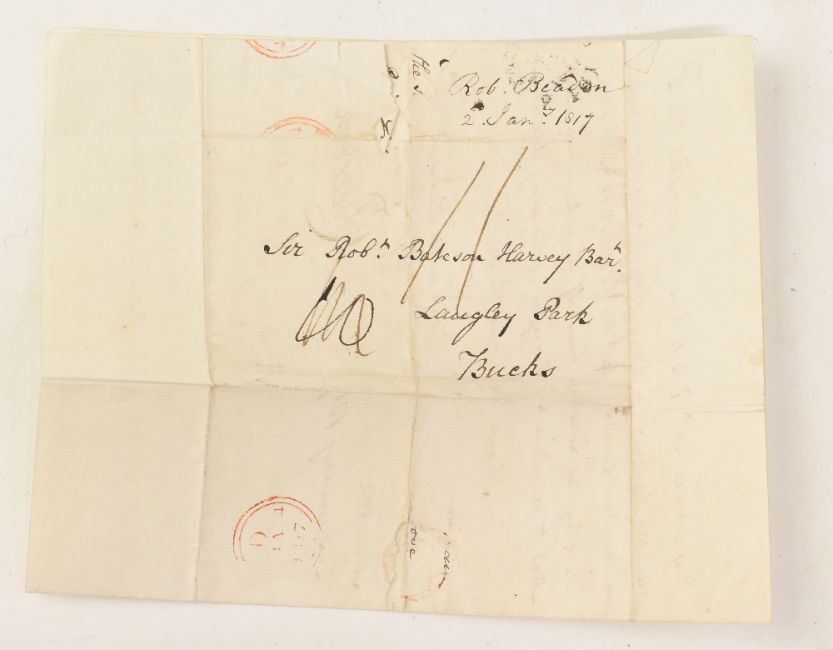 The s
Robt. Beadon
2 Jany. 1817
Sir Robt. Bateson Harvey Bart.
Langley Park
Bucks
4
ove